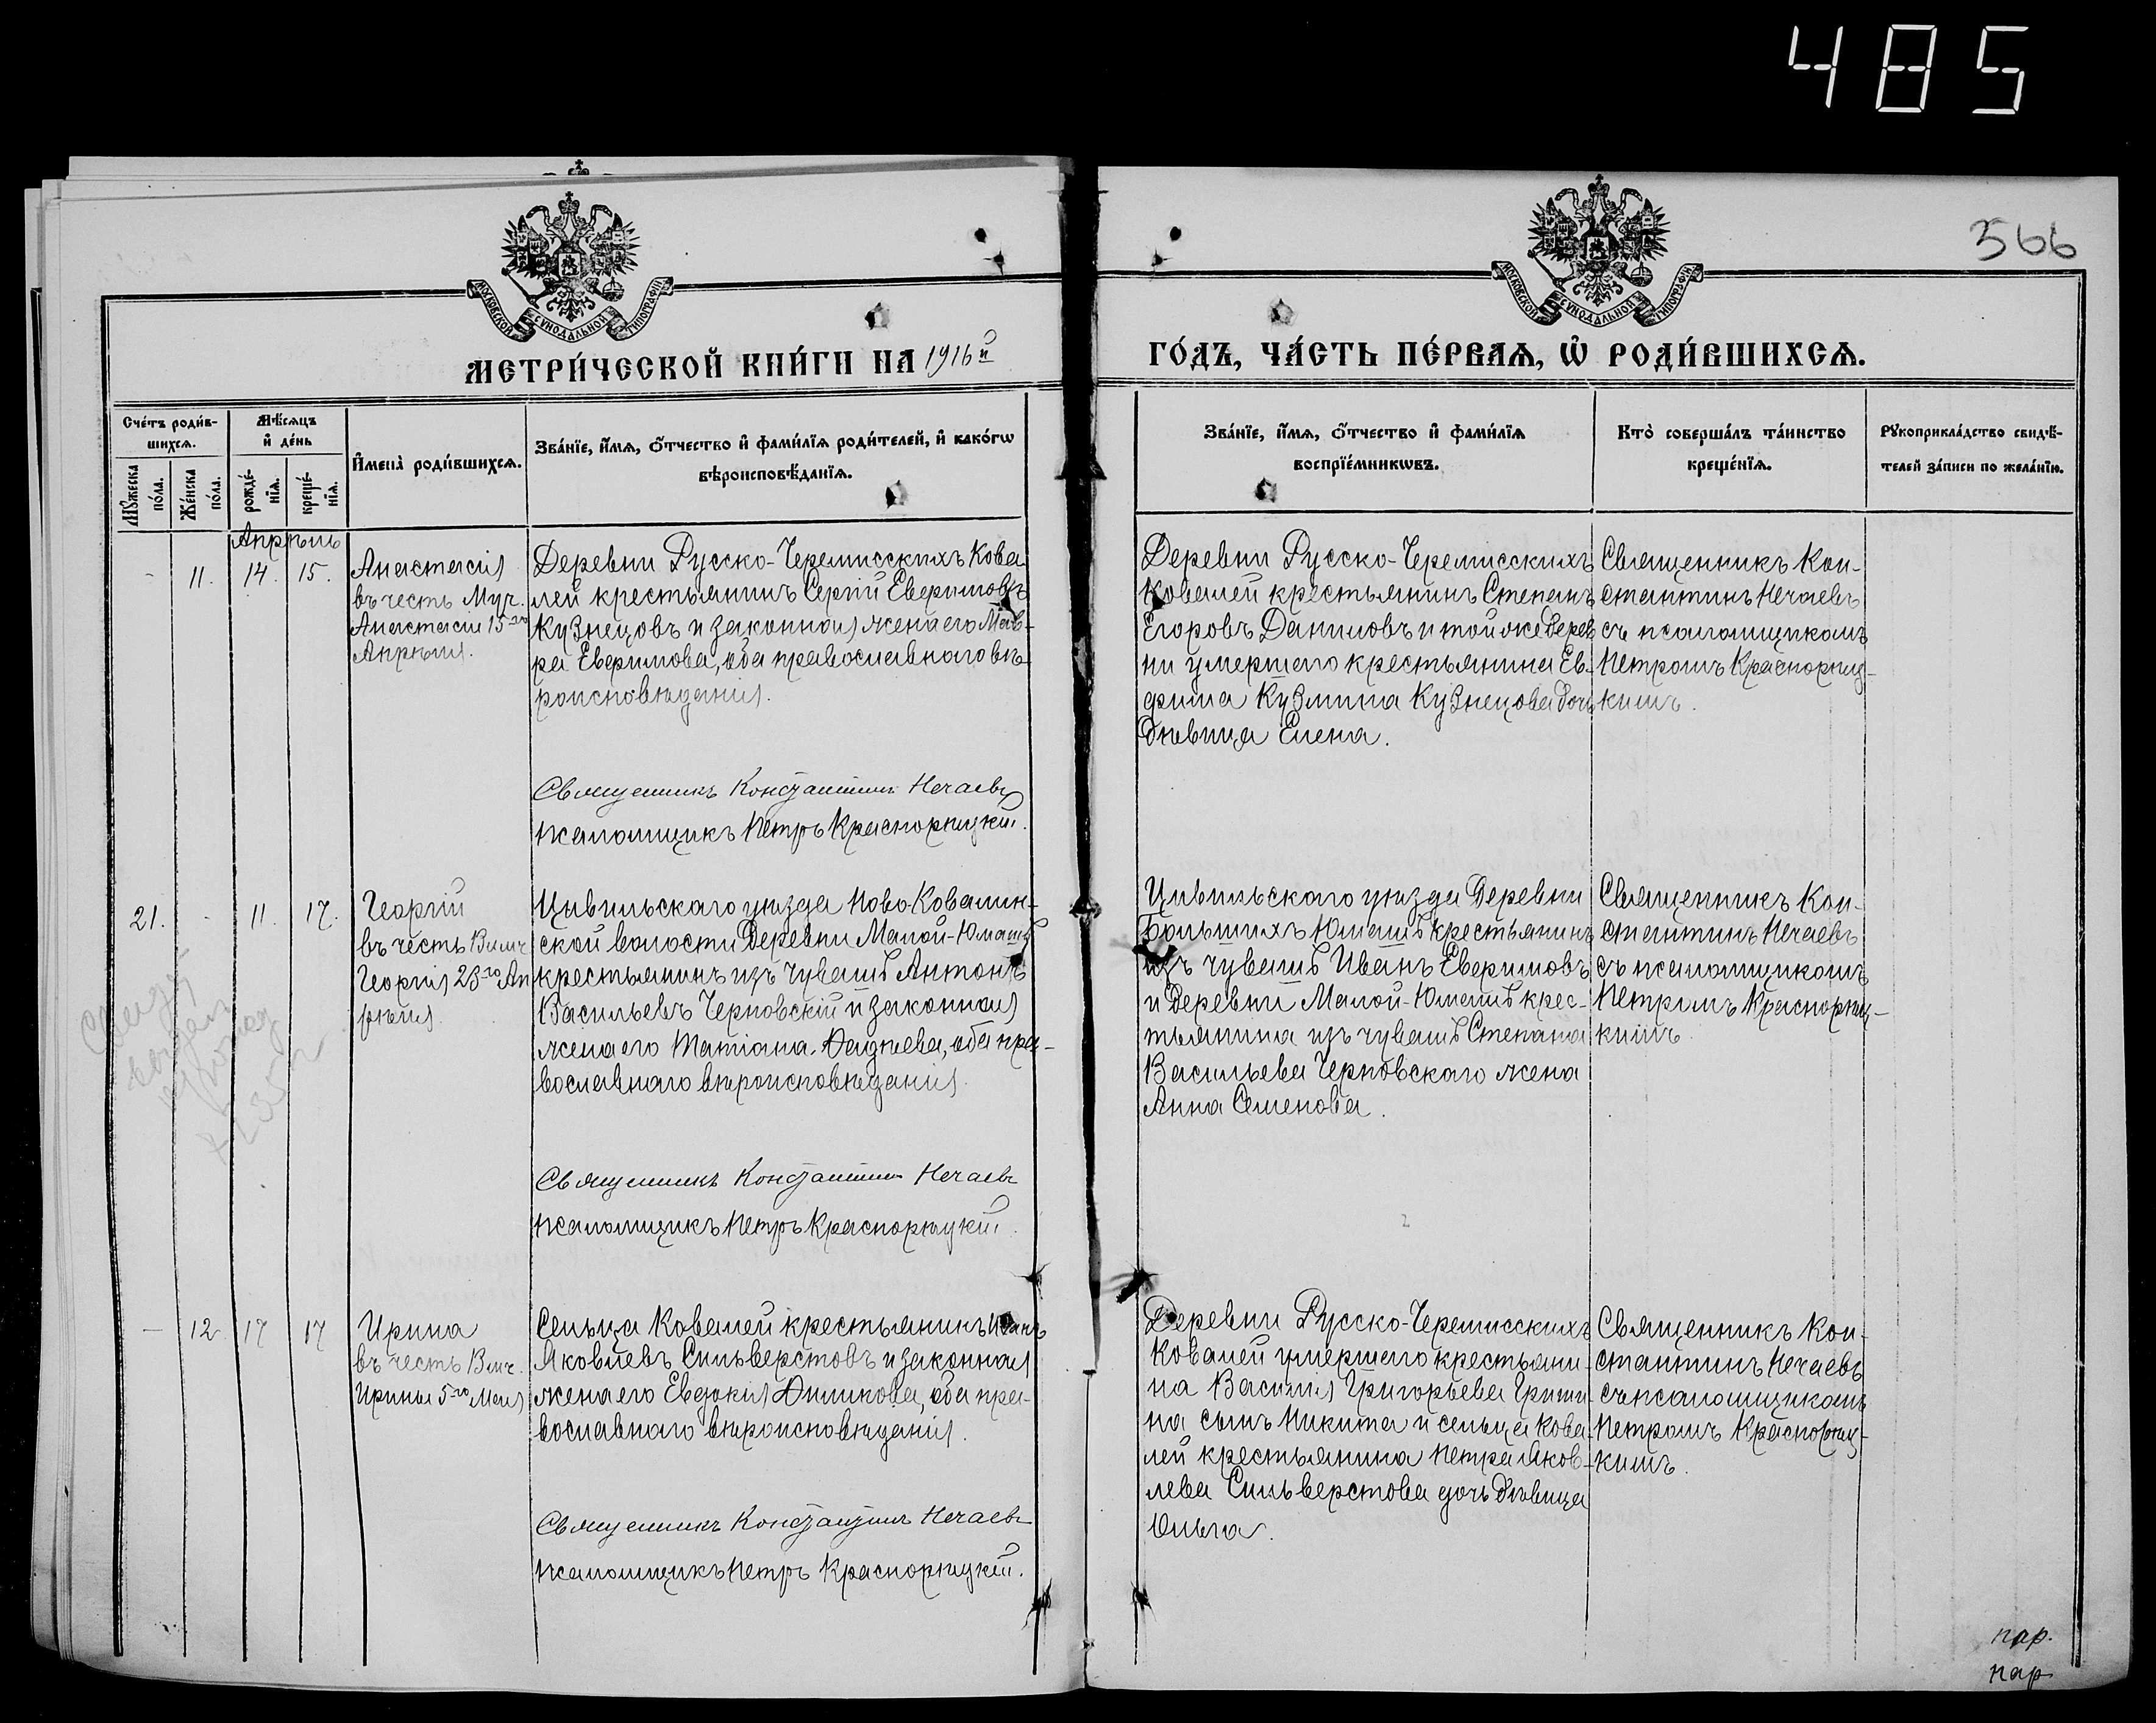 485
366
МОСКОВСКОЙ СѴНОДАЛЬНОЙ ТИПОГРАФІИ
МОСКОВСКОЙ СѴНОДАЛЬНОЙ ТИПОГРАФІИ
МЕТРИ́ЧЕСКОЙ КНИ́ГИ НА 1916й
ГО́ДЪ, ЧА́СТЬ ПЕ́РВАѦ, Ѽ РОДИ́ВШИХСѦ.
Сче́тъ роди́в-
шихсѧ.
Мѣ́сѧцъ
и҆ де́нь
Мꙋ́жеска
по́ла.
Же́нска
по́ла.
рожде́-
нїѧ.
креще́-
нїѧ.
И҆мена̀ роди́вшихсѧ.
Зва́нїе, и҆́мѧ, ѻ҆́тчество и҆ фами́лїѧ роди́телей, и҆ како́гѡ
вѣроисповѣ́данїѧ.
Зва́нїе, и҆́мѧ, ѻ҆́тчество и҆ фами́лїѧ
воспрїе́мникѡвъ.
Кто̀ соверша́лъ та́инство
креще́нїѧ.
Рꙋкоприкла́дство свидѣ́-
телей за́писи по жела́нїю.
Апрѣль
- 11. 14. 15.
Анастасія
въ честь Муч.
Анастасіи 15го
Апрѣля.
Деревни Русско-Черемисскихъ Кова-
лей крестьянинъ Сергій Евфимовъ
Кузнецовъ и законная жена его Мав-
ра Евфимова, оба православнаго вѣ-
роисповѣданія.
Священникъ Константинъ Нечаевъ
Псаломщикъ Петръ Краснорѣцкій.
Деревни Русско-Черемисскихъ
Ковалей крестьянинъ Степанъ
Егоровъ Даниловъ и той же дерев
ни умершаго крестьянина Ев-
фима Кузмина Кузнецова дочь
дѣвица Елена.
Священникъ Кон-
стантинъ Нечаевъ
съ псаломщикомъ
Петромъ Краснорѣц-
кимъ.
21. - 11. 17.
Георгій
въ честь Влмч
Георгія 23го Ап
рѣля
Цивильскаго уѣзда Ново-Ковалин-
ской волости Деревни Малой-Юмашъ
крестьянинъ изъ чувашъ Антонъ
Васильевъ Черновскій и законная
жена его Татіана Фадѣева, оба пра-
вославнаго вѣроисповѣданія.
Священникъ Константинъ Нечаевъ
Псаломщикъ Петръ Краснорѣцкій.
Цивильскаго уѣзда Деревни
Большихъ Юмашъ крестьянинъ
изъ чувашъ Иванъ Евфимовъ
и Деревни Малой-Юмашъ крес-
тьянина изъ чувашъ Степана
Васильева Черновскаго жена
Анна Семенова.
Священникъ Кон-
стантинъ Нечаевъ
съ псаломщикомъ
Петромъ Краснорѣц-
кимъ.
- 12. 17 17
Ирина
въ честь Влмч.
Ирины 5го Мая
Сельца Ковалей крестьянинъ Иванъ
Яковлевъ Сильверстовъ и законная
жена его Евдокія Аникова, оба пра-
вославнаго вѣроисповѣданія.
Священникъ Константинъ Нечаевъ
Псаломщикъ Петръ Краснорѣцкій.
Деревни Русско-Черемисскихъ
Ковалей умершаго крестьяни-
на Василія Григорьева Гриши-
на сынъ Никита и сельца Кова-
лей крестьянина Петра Яков-
лева Сильверстова дочь дѣвица
Ольга.
Священникъ Кон-
стантинъ Нечаевъ
съ псаломщикомъ
Петромъ Краснорѣц-
кимъ.
пар.
пар